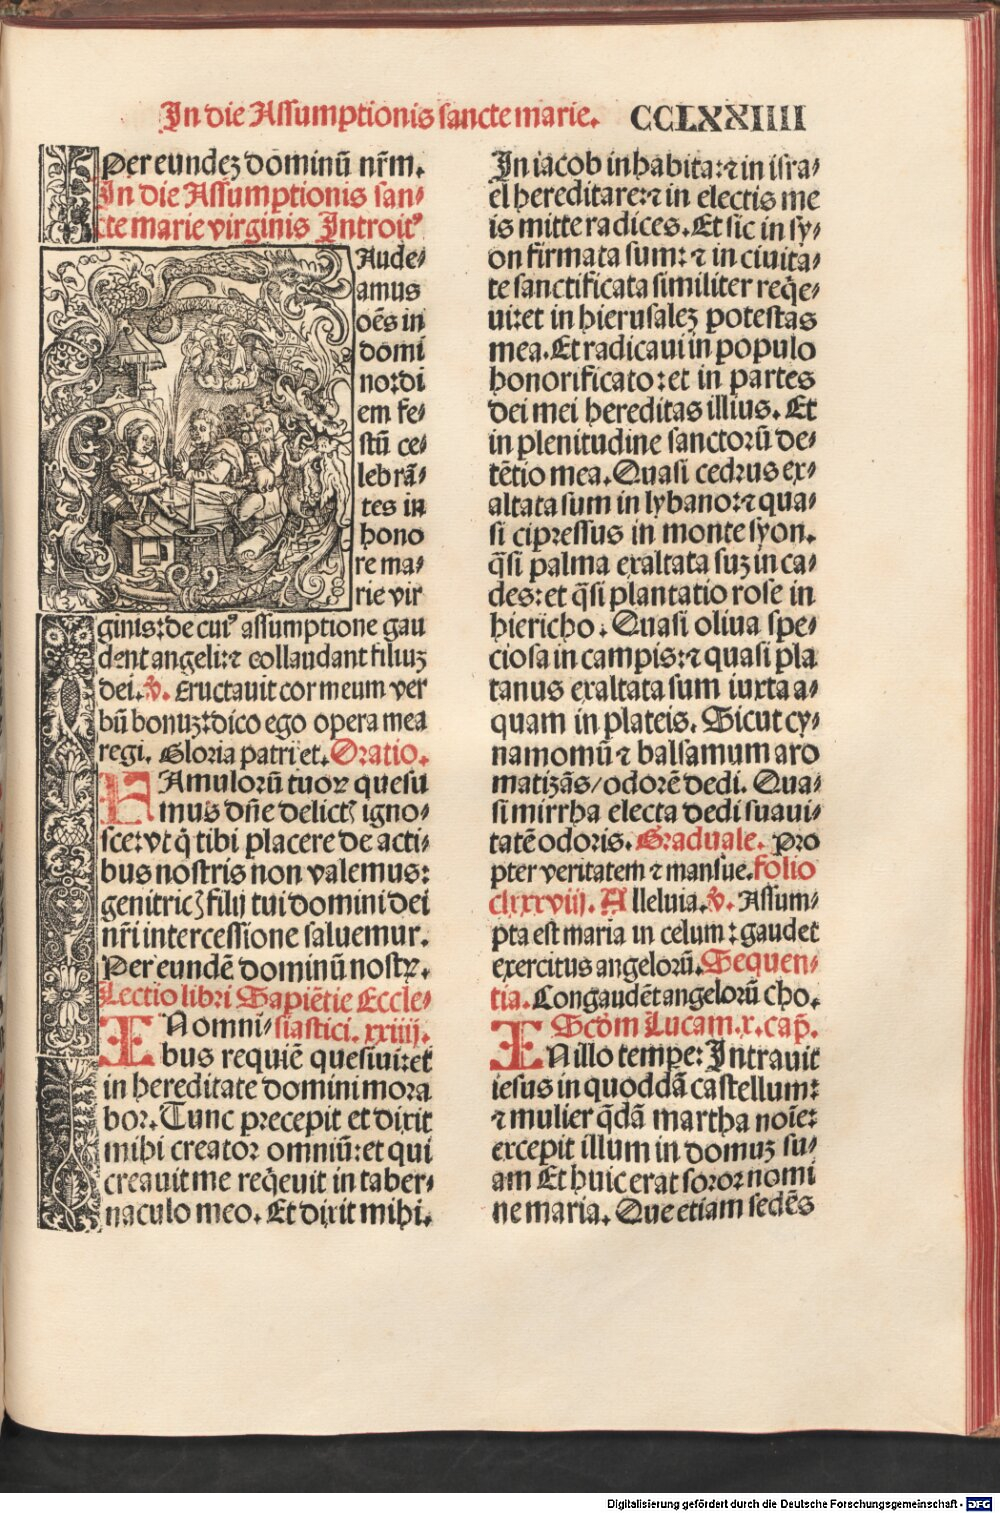 In die Assumptionis sancte marie. CCLXXIIII
Per eundeʒ dominū nr̄m.
In die Assumptionis san⸗
cte marie virginis Introitꝰ
Aude⸗
amus
oēs in
domī
no:dī
em fe⸗
stū ce⸗
lebrā⸗
tes in
hono
re ma⸗
rie vir
ginis:de cuiꝰ assumptione gau
dent angeli:⁊ collaudant filiuʒ
dei. ℣. Eructauit cor meum ver
bū bonuʒ:dico ego opera mea
regi. Gloria patri et. Oratio.
FAmulorū tuoꝝ quesu
mus dn̄e delictꝭ igno⸗
sce:vt q̇ tibi placere de acti⸗
bus nostris non valemus:
genitricꝭ filij tui domini dei
nr̄i intercessione saluemur.
Per eundē dominū nostꝝ.
Lectio libri Sapiētie Eccle⸗
IN omni⸗ siastici. xxiiij.
bus requiē quesiui:et
in hereditate domini mora
bor. Tunc precepit et dixit
mihi creator omniū:et qui
creauit me req̄euit in taber⸗
naculo meo. Et dixit mihi.
In iacob inhabita:⁊ in isra⸗
el hereditare:⁊ in electis me
is mitte radices. Et sic in sy⸗
on firmata sum:⁊ in ciuita⸗
te sanctificata similiter req̄e⸗
ui:et in hierusaleʒ potestas
mea. Et radicaui in populo
honorificato:et in partes
dei mei hereditas illius. Et
in plenitudine sanctorū de⸗
tētio mea. Quasi cedrus ex⸗
altata sum in lybano:⁊ qua⸗
si cipressus in monte syon.
q̄si palma exaltata suʒ in ca⸗
des:et q̄si plantatio rose in
hiericho. Quasi oliua spe⸗
ciosa in campis:⁊ quasi pla
tanus exaltata sum iuxta a⸗
quam in plateis. Sicut cy⸗
namomū ⁊ balsamum aro
matizās/odorē dedi. Qua⸗
si mirrha electa dedi suaui⸗
tatē odoris. Graduale. Pro
pter veritatem ⁊ mansue. Folio
clxxxviij. Alleluia. ℣. Assum⸗
pta est maria in celum:gaudet
exercitus angelorū. Sequen⸗
tia. Congaudēt angelorū cho.
Scd̄m Lucam. x. cap̄.
IN illo tempe: Intrauit
iesus in quoddā castellum:
⁊ mulier q̄dā martha noīe:
excepit illum in domuʒ su⸗
am Et huic erat soror nomi
ne maria. Que etiam sedēs
Digitalisierung gefördert durch die Deutsche Forschungsgemeinschaft - DFG